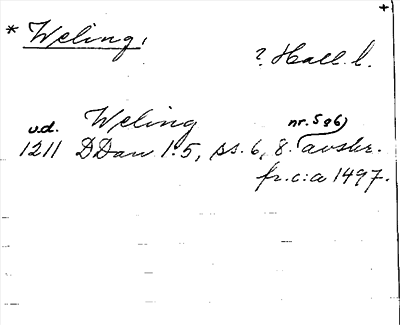 * Weling, +
? Hall. l.
u.d. Weling nr. 5 86)
1211 DDan 1:5, ss. 6, 8. avskr.
fr. c:a 1497.